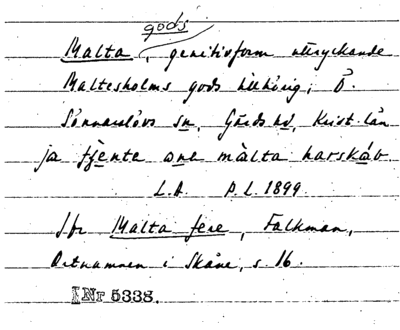 gods
Malta, genitivform uttryckande
Maltesholms gods tillhörig; Ö.
Sönnarslövs sn, Gärds hd, Krist. län
ja tjente one málta harskáb
L.A. P.L. 1899.
Jfr Malta fére, Falkman,
Ortnamnen i Skåne, s. 16.
Nr 5338.